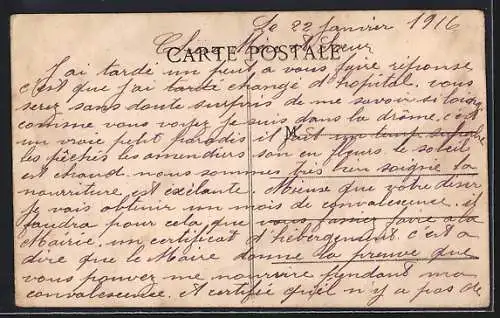 Le 22 Janvier 1916
Cher et Sœur
CARTE POSTALE
J'ai tardé un peut a vous faire réponse
c'est que j'ai tardé changé d'hopital. vous
serez sans doute surpris de me savoir si loing
comme vous voyez je suis dans la drôme. c'est
un vraie petit paradis il fait un temp superbe
M
les pêchés les amendiers son en fleurs. le soleil
est chaud. nous sommes très bien soigné la
nourriture est exitante. que votre désir
je vais obtenir un mois de convalescence. il
faudra pour cela que vous fassiez faire a la
Mairie. un certificat d'hébergement. c'est a
dire que le Maire donne la preuve que
vous pouvez me nourrire pendant ma
convalescence. et certifié qu'il n'y a pas de